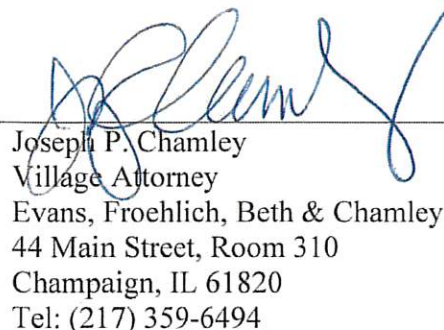 Joseph P. Chamley
Village Attorney
Evans, Froehlich, Beth & Chamley
44 Main Street, Room 310
Champaign, IL 61820
Tel: (217) 359-6494